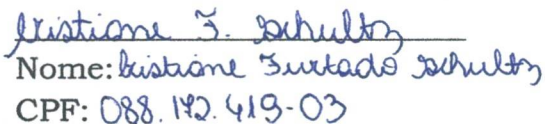 Cristiane F. Schultz
Nome: Cristiane Furtado Schultz
CPF: 088.172.419-03